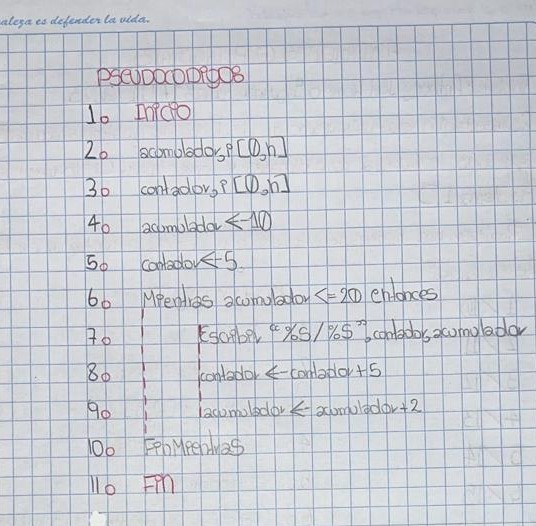 aleza es defender la vida.
PSEUDOCODigO8
1o Inicio
2o acumulador,i [0,n]
3o contador,i [0,n]
4o acumulador <-10
5o contador <-5
6o Mientras acumulador <= 20 entonces
7o Escriber "%S/%S", contador, acumulador
8o contador <-contador+5
9o acumulador <- acumulador+2
10o FinMientras
11o Fin